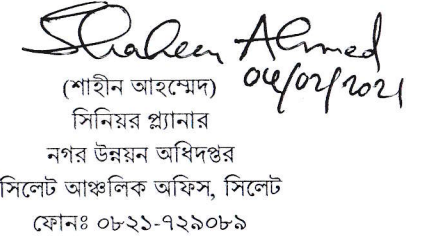 Shaheen Ahmed
04/02/2021
(শাহীন আহম্মেদ)
সিনিয়র প্ল্যানার
নগর উন্নয়ন অধিদপ্তর
সিলেট আঞ্চলিক অফিস, সিলেট
ফোনঃ ০৮২১-৭২৯০৮৯